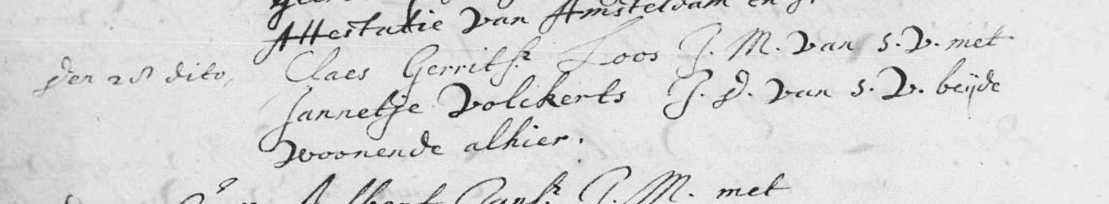 Attestatie van Amsteldam en
den 28 dito, Claes Gerritsz Loos J. M. van s. V. met
Jannetje Volckerts J. D. van s. V. beijde
woonende alhier.
Albert Jansz J. M. met